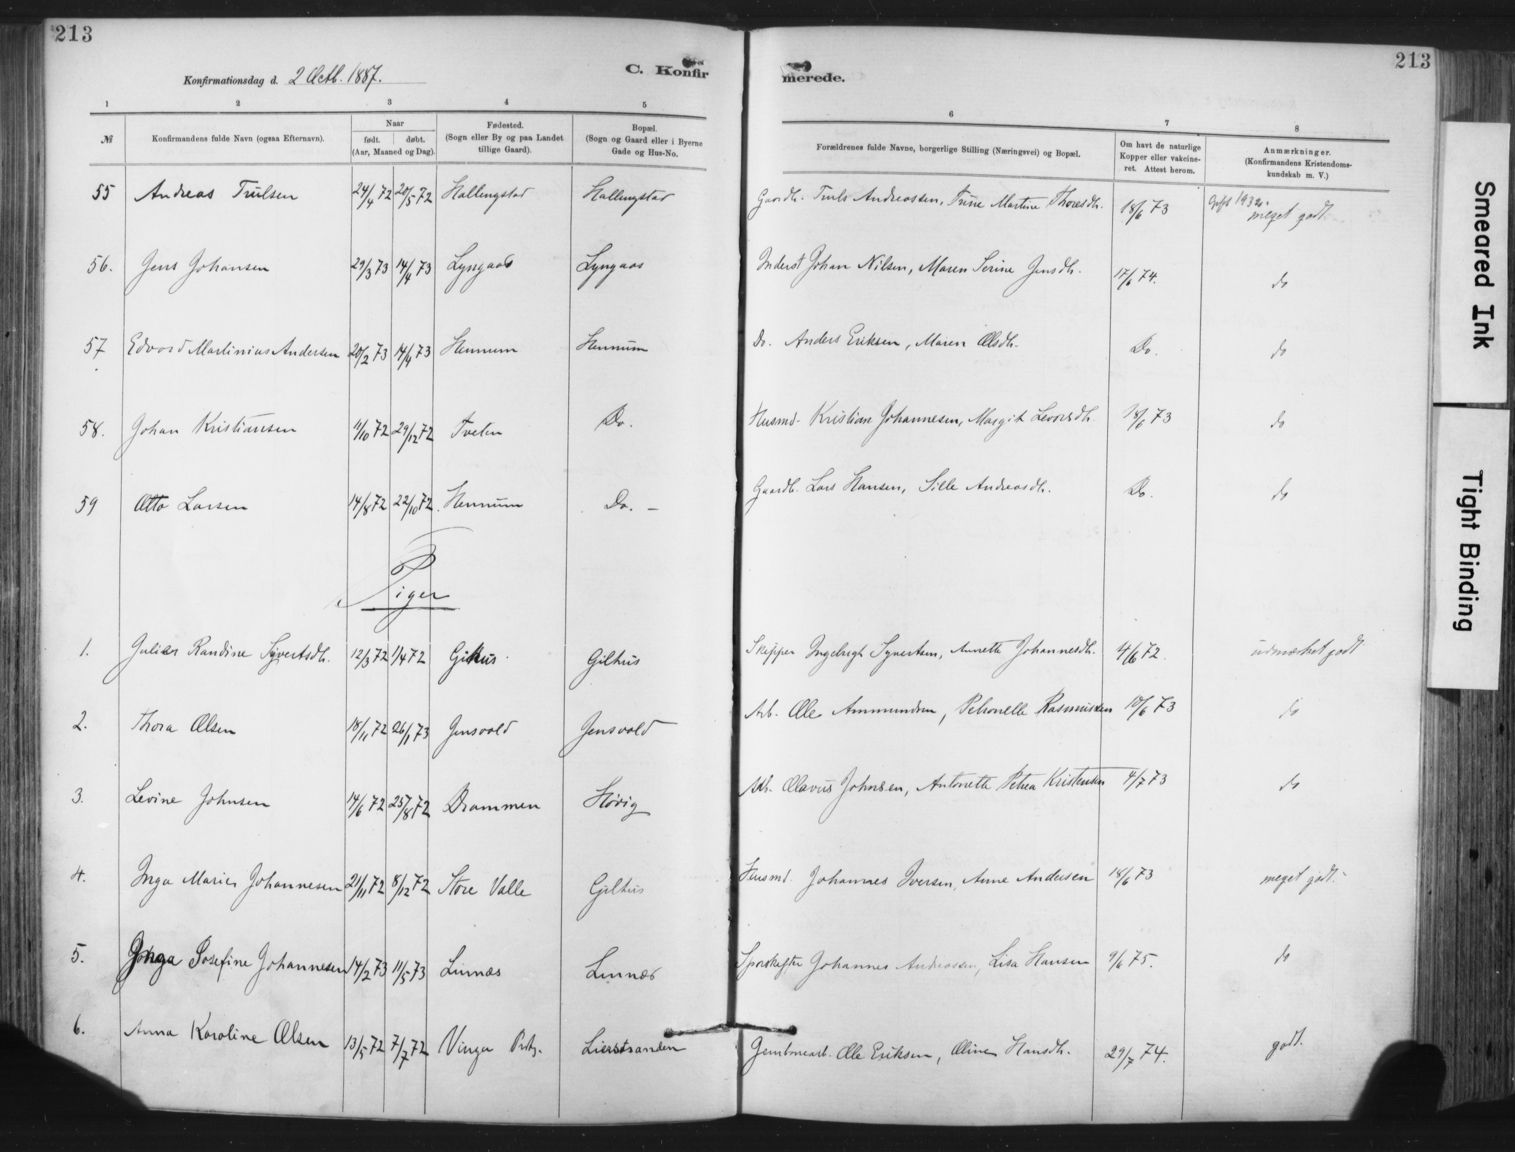 213
Konfirmationsdag d. 2 Octb. 1887.
C. Konfirmerede.
213
1 2 3 4 5 6 7 8
№ | Konfirmandens fulde Navn (ogsaa Efternavn). | Naar født. døbt. (Aar, Maaned og Dag). | Fødested. (Sogn eller By og paa Landet tillige Gaard). | Bopæl. (Sogn og Gaard eller i Byerne Gade og Hus-No. | Forældrenes fulde Navne, borgerlige Stilling (Næringsvei) og Bopæl. | Om havt de naturlige Kopper eller vakcineret. Attest herom. | Anmærkninger. (Konfirmandens Kristendomskundskab m. V.)
55 Andreas Trulsen 24/4 72 20/5 72 Hallingstad Hallingstad Gaardb. Truls Andreassen, Trine Martine Thoresdt. 18/6 73 1932. meget godt.
56. Jens Johansen 29/3 73 14/4 73 Lyngaas Lyngaas Inderst Johan Nilsen, Maren Serine Jensdt. 17/6 74. do
57 Edvard Martinius Andersen 20/2 73 14/4 73 Hennum Hennum Do. Anders Eriksen, Maren Olsdt. Do. do
58. Johan Kristiansen 11/10 72 29/12 72 Tveten Do. Husmd. Kristian Johannesen, Margit 18/6 73 do
59 Otto Larsen 14/8 72 22/10 72 Hennum Do. Gaardb. Lars Hansen, Sille Andreasdt. Do. do
Piger
1. Randine Syvertsdt. 12/3 72 1/4 72 Gilhus Gilhus Skipper Ingebrigt Syvertsen, Annette Johannesdt. 4/6 72. udmærket godt
2. Thora Olsen 18/11 72 26/1 73 Jensvold Jensvold Arb. Ole Ammundsen, Petronelle Rasmussen 10/6 73 do
3. Levine Johnsen 14/6 72 25/8 72 Drammen Høvig Arb. Olavus Johnsen, Antonette Petrea Kristensen 4/7 73 do
4. Inga Marie Johannesen 21/11 72 8/12 72 Store Valle Gilhus Husmd. Johannes Iversen, Anne Andersen 18/6 73 meget godt.
5. Josefine Johannesen 14/2 73 11/5 73 Linnæs Linnæs Sporskifter Johannes Andreassen, Lisa Hansen 9/6 75. do
6. Anna Karoline Olsen 13/5 72 7/7 72 Vinger Lierstranden Ole Eriksen, Oline Hansdt. 29/7 74. godt.
Smeared Ink
Tight Binding